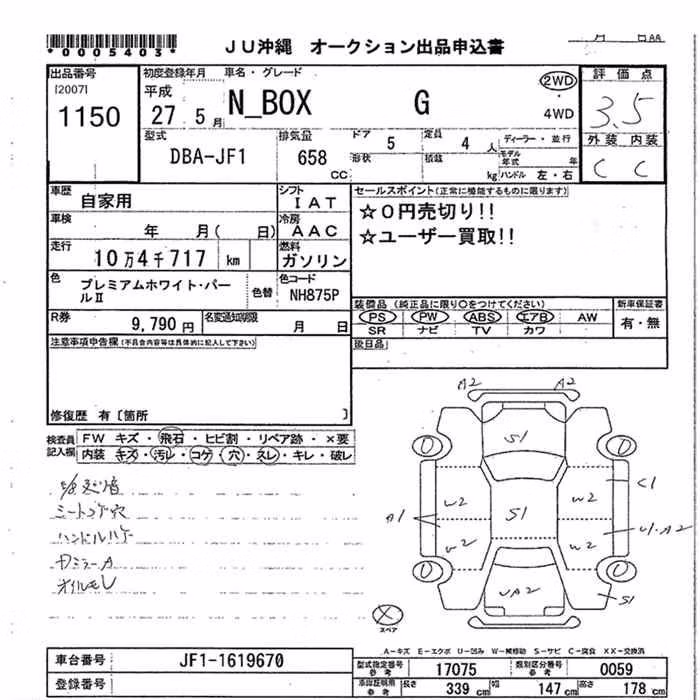 *0005403*
JU沖縄 オークション出品申込書
月 日AA
出品番号 初度登録年月 車名・グレード 評価点
[2007] 平成 2WD
1150 27 5月 N_BOX G 4WD 3.5
型式 排気量 ドア 5 定員 4 人 ディーラー・並行 外装 内装
DBA-JF1 658 CC 形状 積載 kg モデル年式 年 ハンドル 左・右 C C
車歴 自家用 シフト IAT セールスポイント(正常に機能するものに限ります)
車検 年 月( 日) 冷房 AAC ☆0円売切り!!
走行 10万4千717 km 燃料 ガソリン ☆ユーザー買取!!
色 プレミアムホワイト・パールⅡ 色替 色コード NH875P
装備品(純正品に限り○をつけてください) 新車保証書
PS PW ABS エアB AW 有・無
SR ナビ TV カワ
R券 9,790円 名変通知期限 月 日
後日品
注意事項申告欄(不具合内容等は具体的に記入して下さい)
修復歴 有〔箇所 〕
検査員記入欄 FW キズ・飛石・ヒビ割・リペア跡・×要
内装・キズ・汚レ・コゲ・穴・スレ・キレ・破レ
シートコゲ穴
ハンドルハゲ
カミラーA
オイルモレ
A2 A2
S1
C1
W2 W2
A1 S1 U1・A2
W2 W2
UA2
S1
スペア
A-キズ E-エクボ U-凹み W-補修跡 S-サビ C-腐食 XX-交換済
車台番号 JF1-1619670 型式指定番号 参考 17075 類別区分番号 参考 0059
登録番号 車検証明用 参考 長さ 339 cm 幅 147 cm 高さ 178 cm